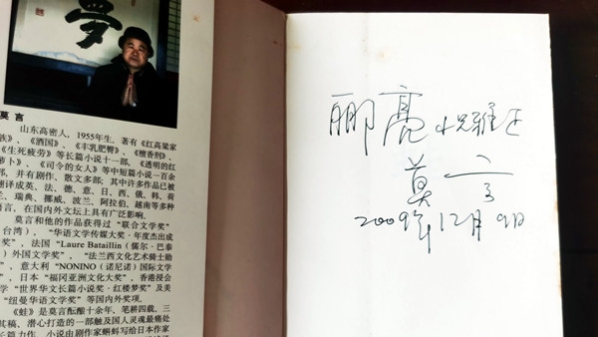 夢
莫 言
山东高密人，1955年生。著有《红高粱家
族》、《酒国》、《丰乳肥臀》、《檀香刑》、
《生死疲劳》等长篇小说十一部，《透明的红
萝卜》、《司令的女人》等中短篇小说一百余
部，并有剧作、散文多部；其中许多作品已被
翻译成英、法、德、意、日、西、俄、韩、荷
兰、瑞典、挪威、波兰、阿拉伯、越南等多种
语言，在国内外文坛上具有广泛影响。
莫言和他的作品获得过“联合文学奖”
台湾），“华语文学传媒大奖·年度杰出成
奖”，法国“Laure Bataillin（儒尔·巴泰
）外国文学奖”，“法兰西文化艺术骑士勋
，意大利“NONINO（诺尼诺）国际文学
”，日本“福冈亚洲文化大奖”，香港浸会
学“世界华文长篇小说奖·红楼梦奖”及美
“纽曼华语文学奖”等国内外奖项。
《蛙》是莫言酝酿十余年、笔耕四载、三
其稿、潜心打造的一部触及国人灵魂最痛处
长篇力作。小说由剧作家蝌蚪写给日本作家
郦亮小兄雅正
莫言
2009年12月9日